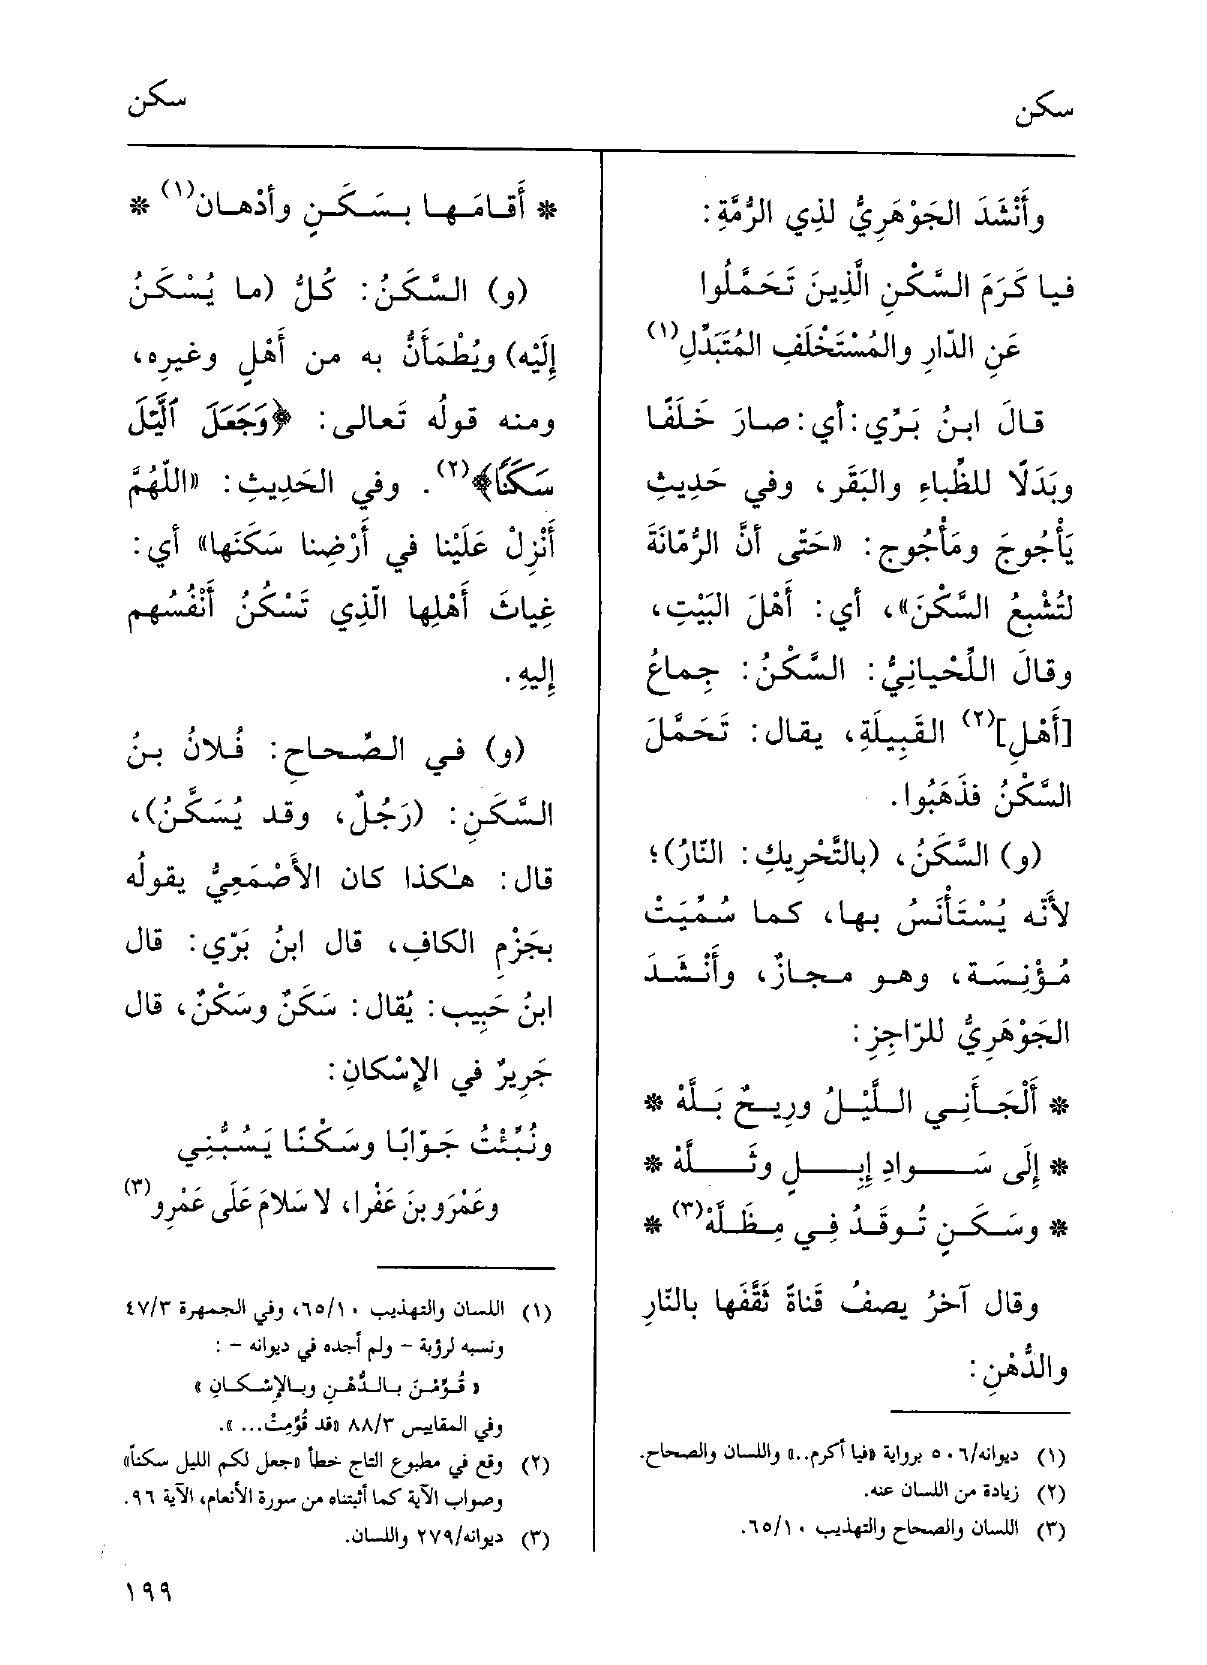 سكن
سكن
وأَنْشَدَ الجَوْهَرِيُّ لذِي الرُّمَّةِ:
فيا كَرَمَ السَّكْنِ الَّذِينَ تَحَمَّلُوا
عَنِ الدّارِ والمُسْتَخْلَفِ المُتَبَدِّلِ(١)
قالَ ابنُ بَرِّي: أي: صارَ خَلَفًا
وبَدَلًا للظِّباءِ والبَقَر، وفي حَدِيثِ
يَأْجُوجَ ومَأْجُوج: «حَتّى أنَّ الرُّمّانَةَ
لتُشْبِعُ السَّكْنَ»، أي: أَهْلَ البَيْتِ،
وقالَ اللِّحْيانِيُّ: السَّكْنُ: جِماعُ
[أَهْلِ](٢) القَبِيلَةِ، يقال: تَحَمَّلَ
السَّكْنُ فذَهَبُوا.
(و) السَّكَنُ، (بالتَّحْرِيكِ: النّارُ)؛
لأَنّه يُسْتَأْنَسُ بها، كما سُمِّيَتْ
مُؤْنِسَة، وهو مجازٌ، وأَنْشَدَ
الجَوْهَرِيُّ للرّاجِزِ:
* أَلْجَأَنِي اللَّيْلُ ورِيحٌ بَلَّهْ *
* إِلَى سَوادِ إِبِلٍ وثَلَّهْ *
* وسَكَنٍ تُوقَدُ فِي مِظَلَّهْ(٣) *
وقال آخرُ يصفُ قَناةً ثَقَّفَها بالنّارِ
والدُّهْنِ:
(١) ديوانه/٥٠٦ برواية «فيا أكرم..» واللسان والصحاح.
(٢) زيادة من اللسان عنه.
(٣) اللسان والصحاح والتهذيب ٦٥/١٠.
* أَقامَها بسَكَنٍ وأَدْهان(١) *
(و) السَّكَنُ: كُلُّ (ما يُسْكَنُ
إِلَيْه) ويُطْمَأَنُّ به من أَهْلٍ وغيرِه،
ومنه قولُه تَعالى: ﴿وَجَعَلَ ٱلَّيْلَ
سَكَنًا﴾(٢). وفي الحَدِيثِ: «اللّهُمَّ
أَنْزِلْ عَلَيْنا في أَرْضِنا سَكَنَها» أي:
غِياثَ أَهْلِها الّذِي تَسْكُنُ أَنْفُسُهم
إِليهِ.
(و) في الصِّحاحِ: فُلانُ بنُ
السَّكَنِ: (رَجُلٌ، وقد يُسَكَّنُ)،
قال: هٰكذا كان الأَصْمَعِيُّ يقولُه
بجَزْمِ الكافِ، قال ابنُ بَرّي: قال
ابنُ حَبِيب: يُقال: سَكَنٌ وسَكْنٌ، قال
جَرِيرٌ في الإِسْكانِ:
ونُبِّئْتُ جَوّابًا وسَكْنًا يَسُبُّنِي
وعَمْرَو بنَ عَفْرا، لا سَلامَ عَلَى عَمْرِو(٣)
(١) اللسان والتهذيب ٦٥/١٠، وفي الجمهرة ٤٧/٣
ونسبه لرؤبة - ولم أجده في ديوانه - :
« قُوِّمْنَ بالدُّهْنِ وبالإِسْكانِ »
وفي المقاييس ٨٨/٣ «قد قُوِّمِتْ...».
(٢) وقع في مطبوع التاج خطأ «جعل لكم الليل سكناً»
وصواب الآية كما أثبتناه من سورة الأنعام، الآية ٩٦.
(٣) ديوانه/٢٧٩ واللسان.
١٩٩